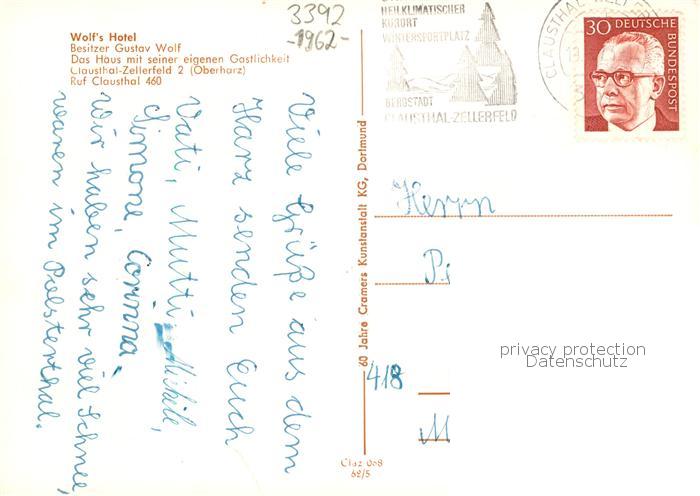 3392
-1962-
Wolf's Hotel
Besitzer Gustav Wolf
Das Haus mit seiner eigenen Gastlichkeit
Clausthal-Zellerfeld 2 (Oberharz)
Ruf Clausthal 460
HEILKLIMATISCHER
KURORT
WINTERSPORTPLATZ
BERGSTADT
CLAUSTHAL-ZELLERFELD
30 DEUTSCHE
BUNDESPOST
Viele Grüße aus dem
Harz senden Euch
Vati, Mutti, Michele,
Simone, Corinna.
Wir haben sehr viel Schnee,
waren im Polstertal.
60 Jahre Cramers Kunstanstalt KG, Dortmund
Herrn
Pi
418
M
privacy protection
Datenschutz
Claz 068
62/5